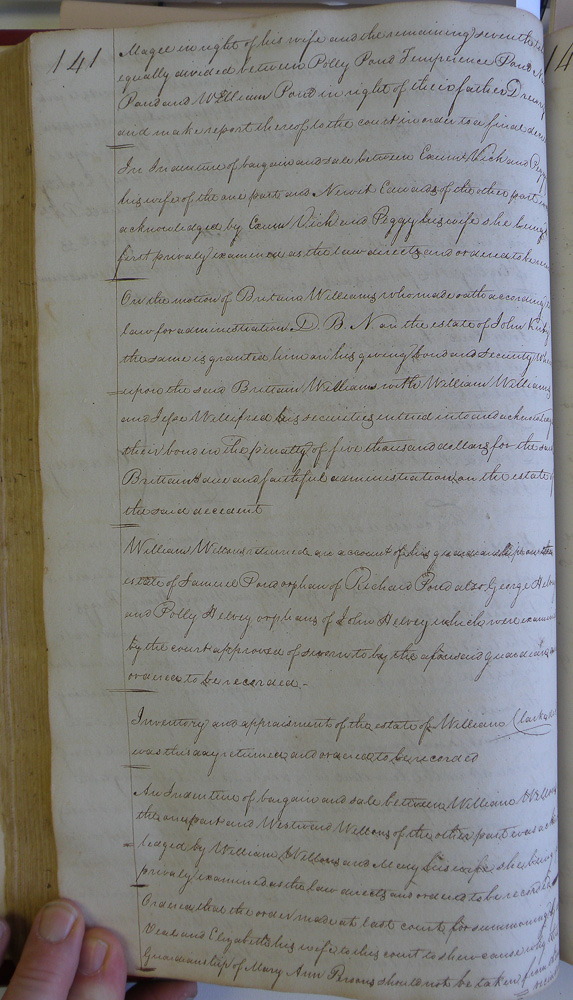 141
Magee in right of his wife and the remaining seventh to be
equally divided between Polly Pond Temperence Pond
Pond and William Pond in right of their father Drewry
and make report thereof to the court in order to a final decree
An Indenture of bargain and sale between Vick and Peggy
his wife of the one part and Newit Edwards of the other part
acknowledged by Vick and Peggy his wife she being
first privaly examined as the law directs and ordered to be
On the motion of Britain Williams who made oath according to
law for administration D. B. N. on the estate of John
the same is granted him on his giving bond and security
upon the said Brittain Williams with William Williams
and Jesse his securities entered into and acknowledged
their bond in the penalty of five thousand dollars for the said
Brittains due and faithful administration on the estate of
the said decedent
William returned an account of his guardianship on the
estate of Samuel Pond orphan of Richard Pond also George Helvey
and Polly Helvey orphans of John Helvey which were examined
by the court approved of sworn to by the aforesaid guardian
ordered to be recorded -
Inventory and appraisment of the estate of William
was this day returned and ordered to be recorded
An Indenture of bargain and sale between William
the one part and Wellons of the other part was
ledged by William Wellons and Mary his wife she being
privaly examined as the law directs and ordered to be recorded
Ordered that the order made at last court for summoning
and Elizabeth his wife to this court to shew cause why the
Guardianship of Mary Ann Persons should not be taken from
14